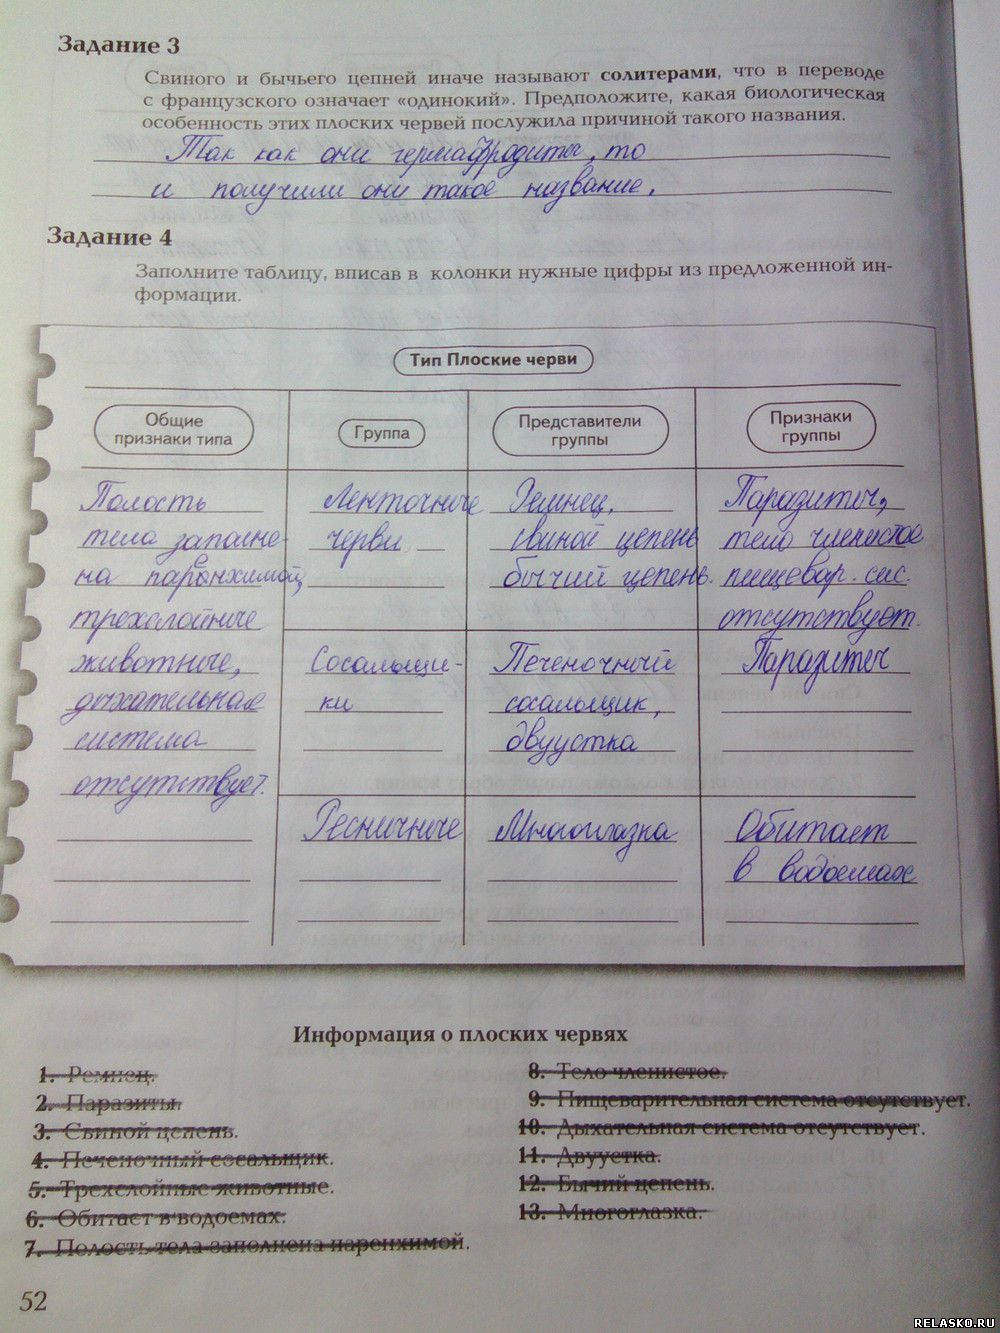 Задание 3
Свиного и бычьего цепней иначе называют солитерами, что в переводе
с французского означает «одинокий». Предположите, какая биологическая
особенность этих плоских червей послужила причиной такого названия.
Так как они гермафродиты, то
и получили они такое название.
Задание 4
Заполните таблицу, вписав в колонки нужные цифры из предложенной ин-
формации.
Тип Плоские черви
Общие
признаки типа
Группа
Представители
группы
Признаки
группы
Полость
тела заполне-
на паренхимой,
трехслойные
животные,
дыхательная
система
отсутствует.
Ленточные
черви
Ремнец,
свиной цепень
бычий цепень.
Паразиты,
тело членистое
пищевар. сис.
отсутствует.
Сосальщи-
ки
Печеночный
сосальщик,
двуустка
Паразиты
Ресничные
Многоглазка
Обитает
в водоемах
Информация о плоских червях
1. Ремнец.
2. Паразиты.
3. Свиной цепень.
4. Печеночный сосальщик.
5. Трехслойные животные.
6. Обитает в водоемах.
7. Полость тела заполнена паренхимой.
8. Тело членистое.
9. Пищеварительная система отсутствует.
10. Дыхательная система отсутствует.
11. Двуустка.
12. Бычий цепень.
13. Многоглазка.
52
RELASKO.RU